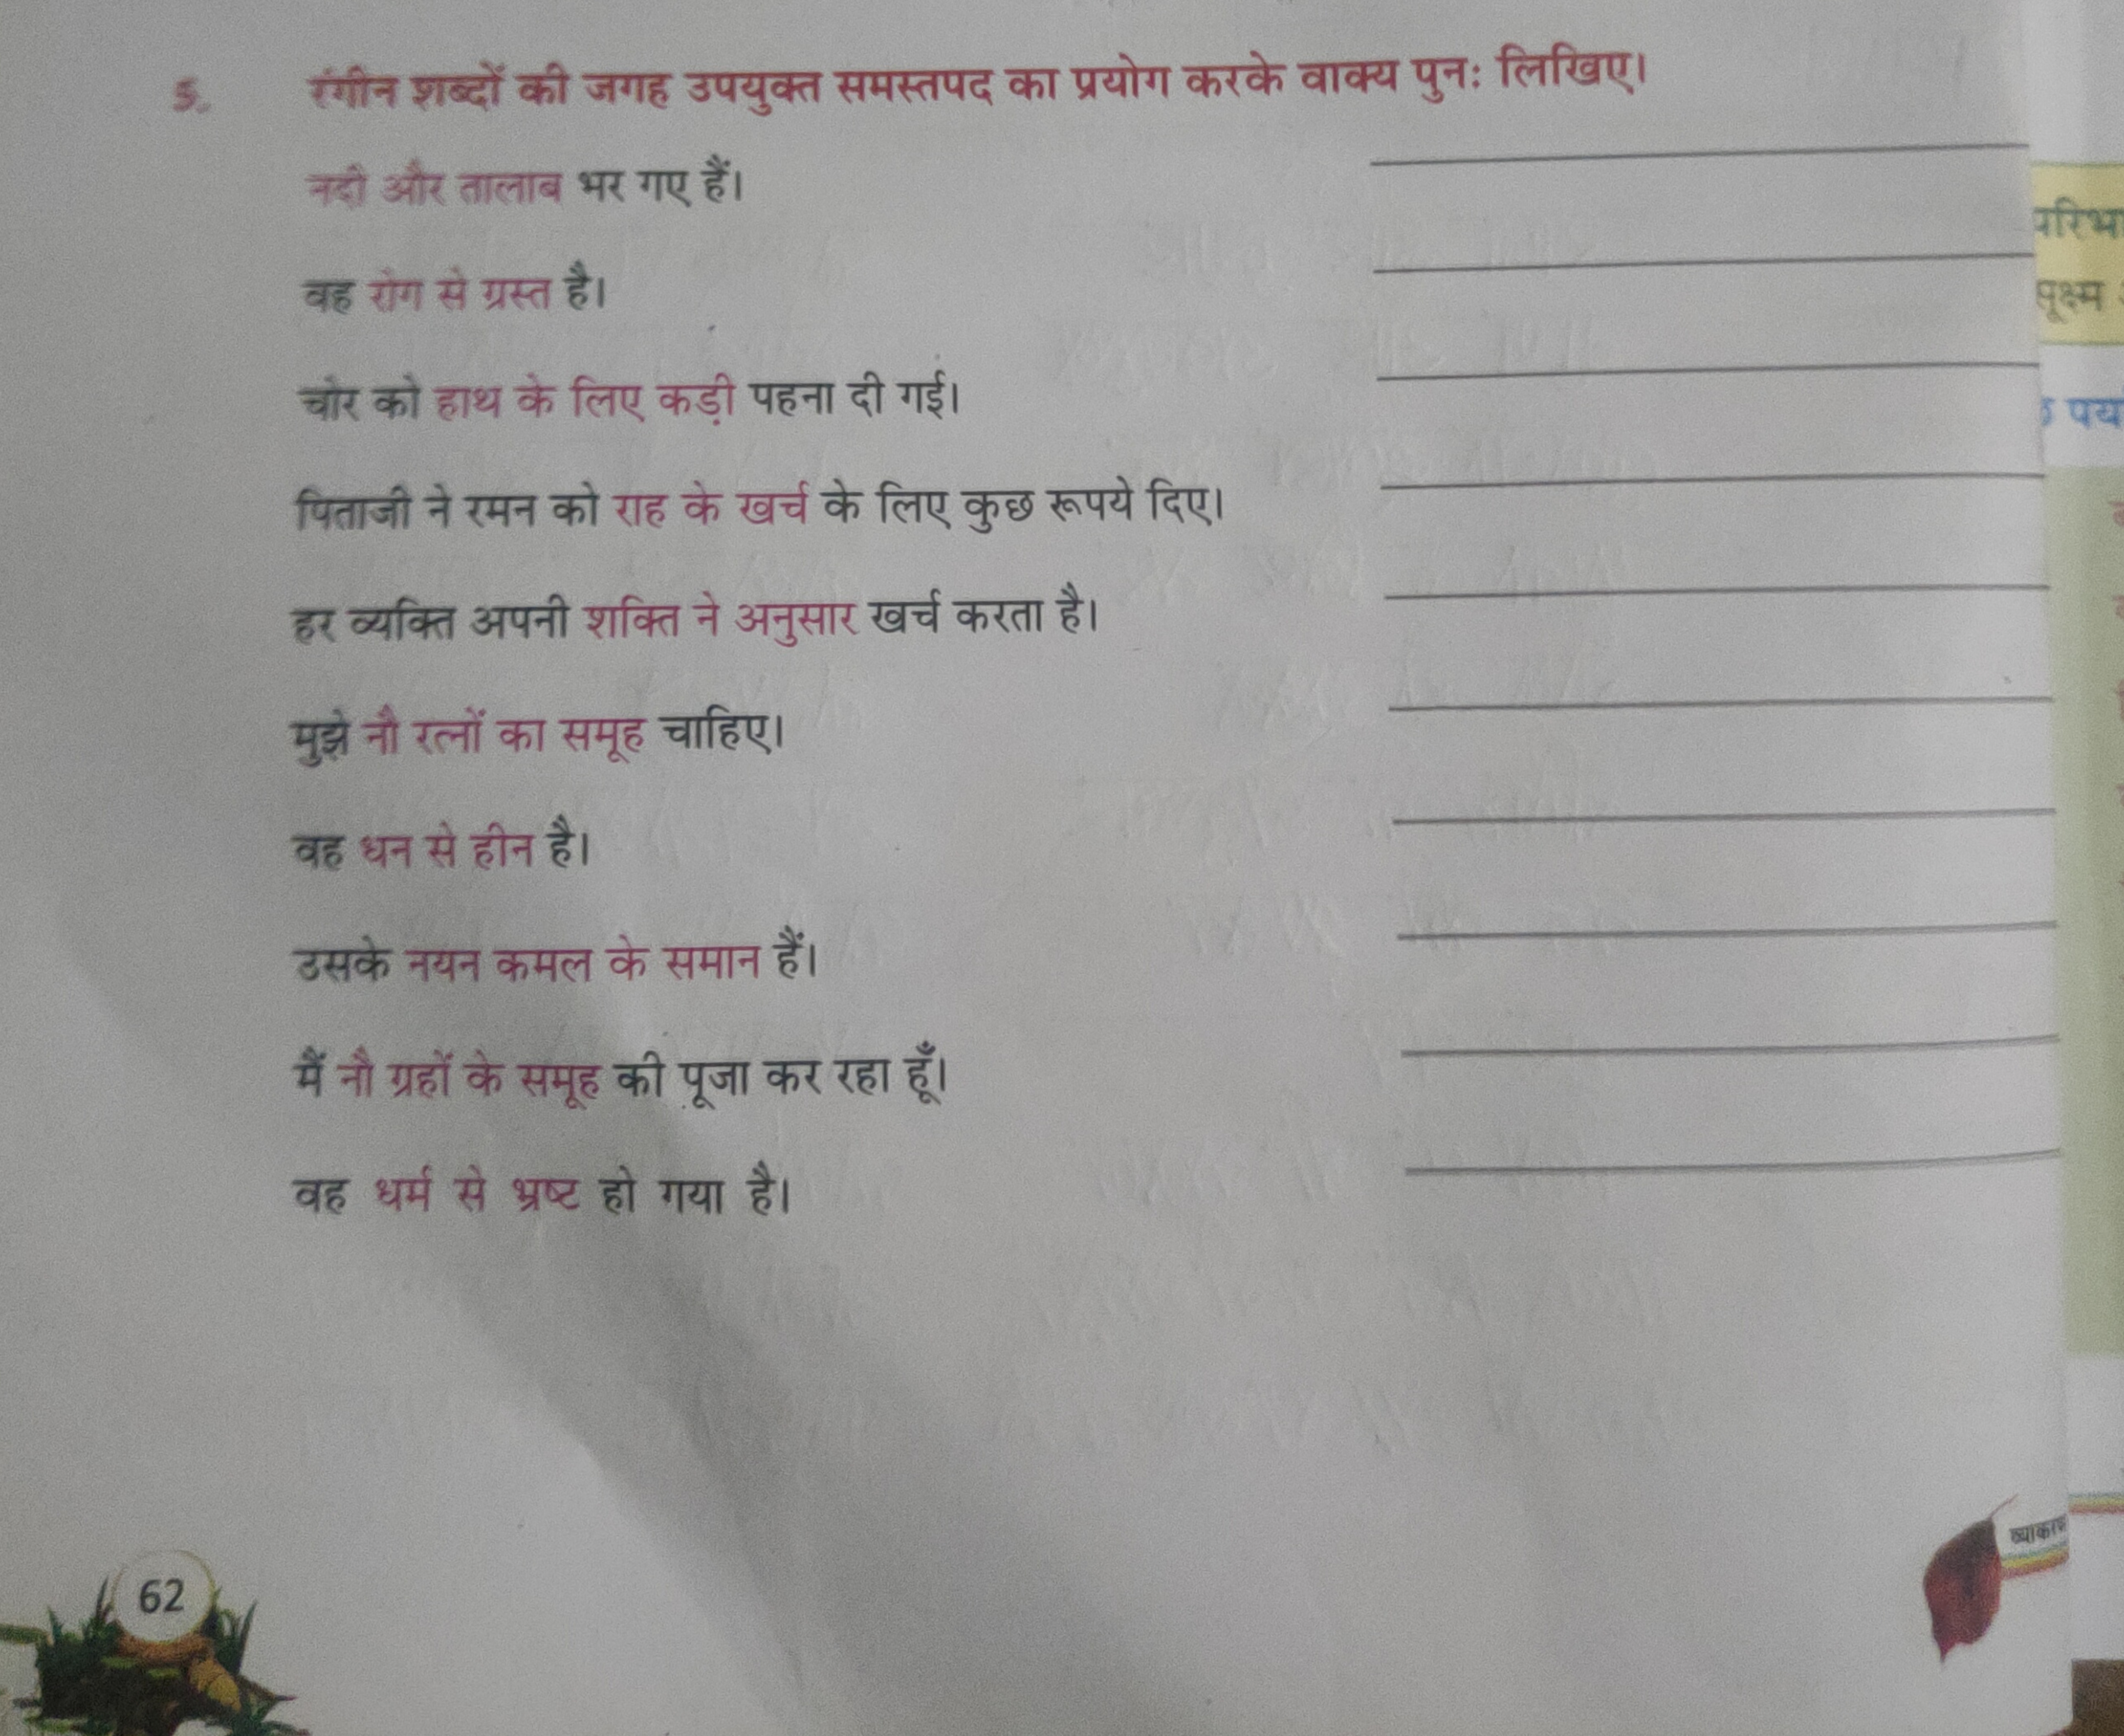 5. रंगीन शब्दों की जगह उपयुक्त समस्तपद का प्रयोग करके वाक्य पुनः लिखिए।
नदी और तालाब भर गए हैं।
वह रोग से ग्रस्त है।
चोर को हाथ के लिए कड़ी पहना दी गई।
पिताजी ने रमन को राह के खर्च के लिए कुछ रूपये दिए।
हर व्यक्ति अपनी शक्ति ने अनुसार खर्च करता है।
मुझे नौ रत्नों का समूह चाहिए।
वह धन से हीन है।
उसके नयन कमल के समान हैं।
मैं नौ ग्रहों के समूह की पूजा कर रहा हूँ।
वह धर्म से भ्रष्ट हो गया है।
62
परिभा
सूक्ष्म